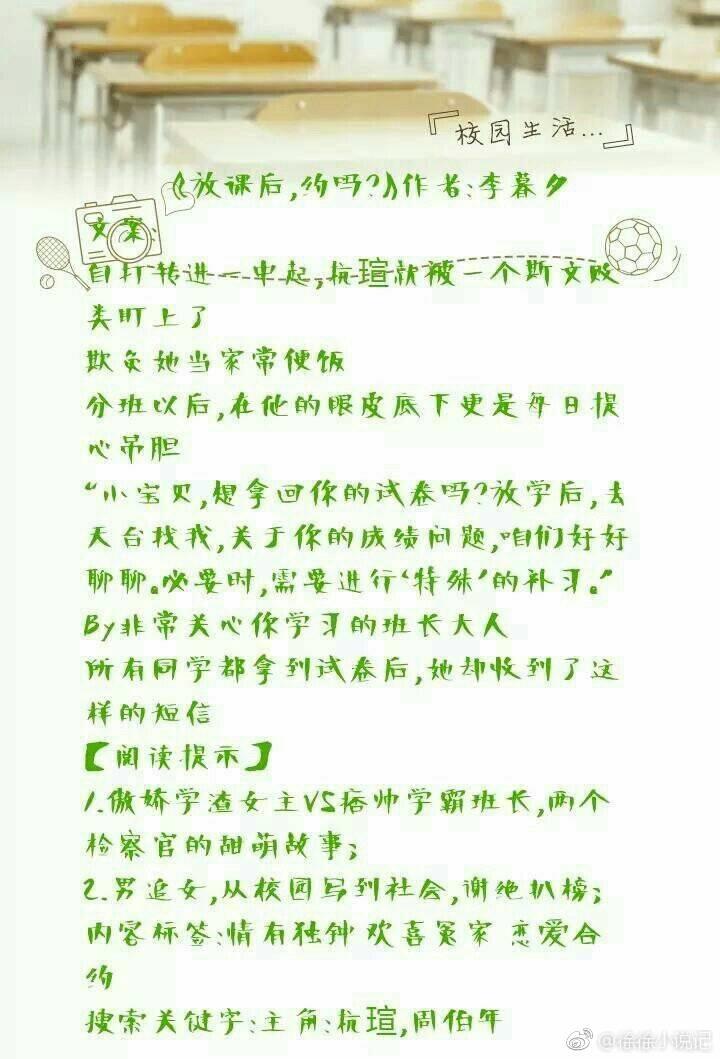 『校园生活...』
《放课后,约吗?》作者:李暮夕
文案:
自打转进一中起,杭瑄就被一个斯文败
类盯上了
欺负她当家常便饭
分班以后,在他的眼皮底下更是每日提
心吊胆
“小宝贝,想拿回你的试卷吗?放学后,去
天台找我,关于你的成绩问题,咱们好好
聊聊。必要时,需要进行‘特殊’的补习。”
By非常关心你学习的班长大人
所有同学都拿到试卷后,她却收到了这
样的短信
【阅读提示】
1.傲娇学渣女主VS痞帅学霸班长,两个
检察官的甜萌故事;
2.男追女,从校园写到社会,谢绝扒榜;
内容标签:情有独钟 欢喜冤家 恋爱合
约
搜索关键字:主角:杭瑄,周伯年
@徐徐小说记